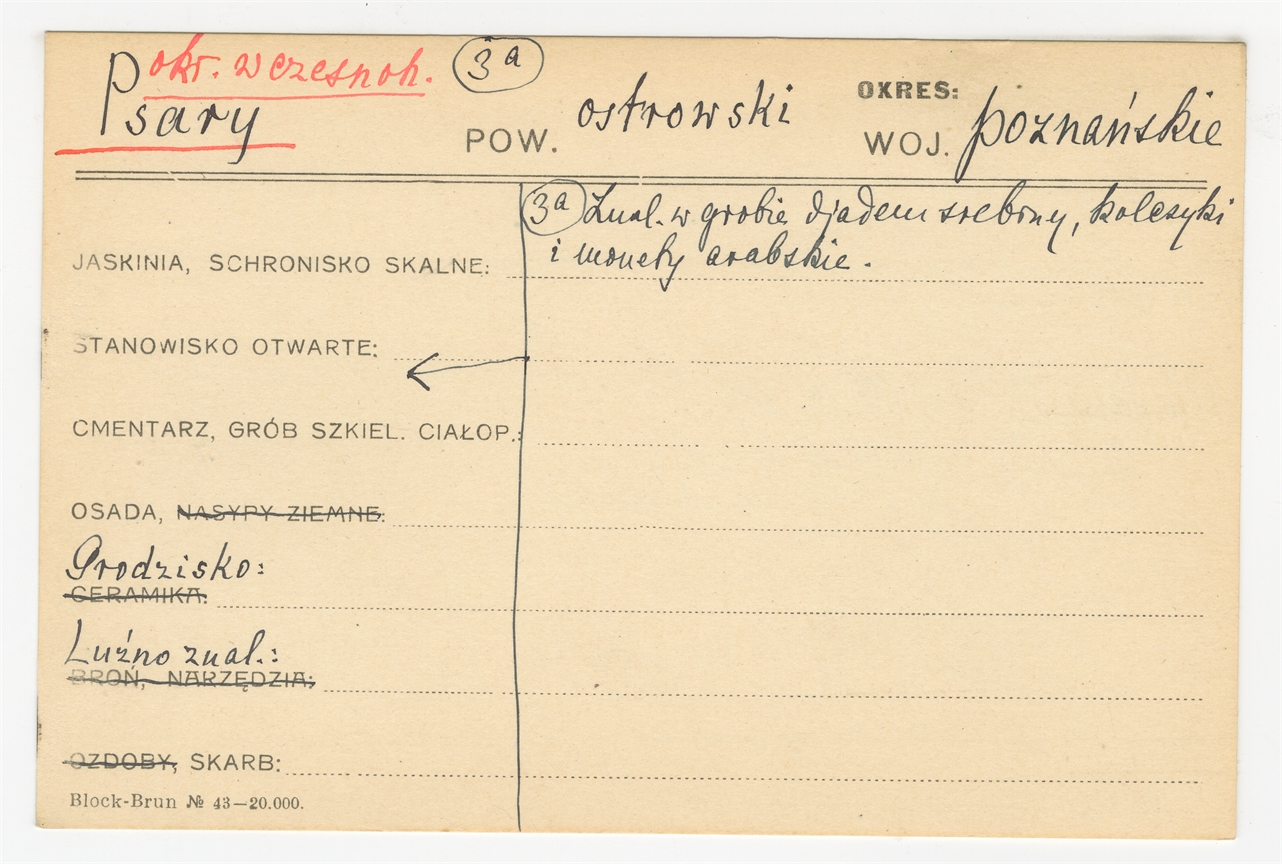 okr. wczesnoh. 3a
Psary POW. ostrowski OKRES:
WOJ. poznańskie
3a Znal. w grobie djadem srebrny, kolczyki
i monety arabskie.
JASKINIA, SCHRONISKO SKALNE:
STANOWISKO OTWARTE:
CMENTARZ, GRÓB SZKIEL. CIAŁOP.:
OSADA, NASYPY ZIEMNE:
Grodzisko:
CERAMIKA:
Luźno znal.:
BROŃ, NARZĘDZIA:
OZDOBY, SKARB:
Block-Brun № 43—20.000.